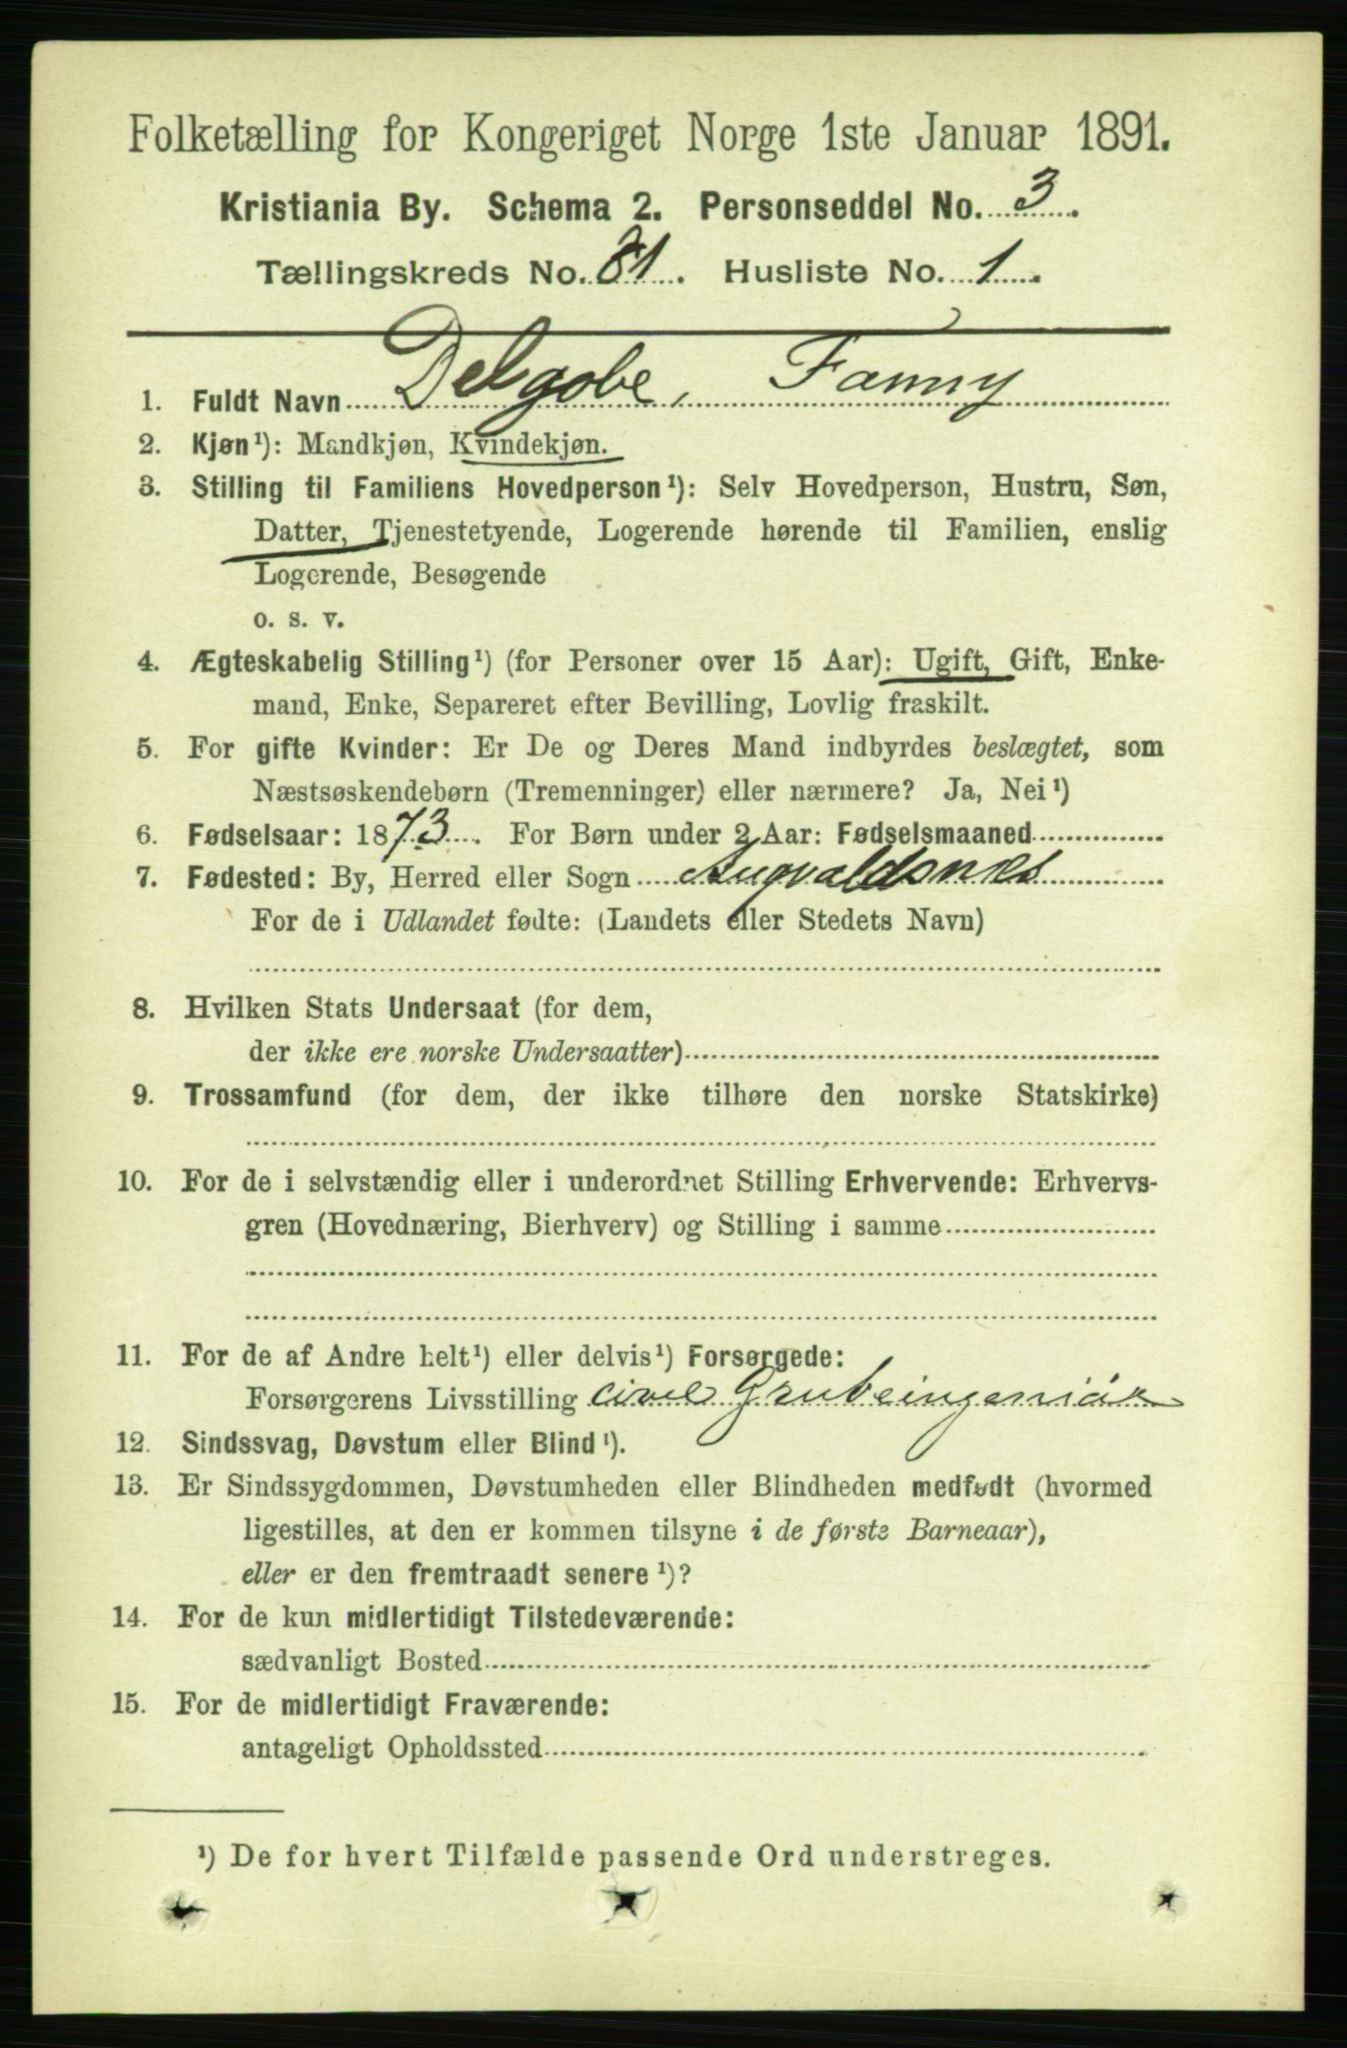 Folketælling for Kongeriget Norge 1ste Januar 1891.
Kristiania By. Schema 2. Personseddel No. 3.
Tællingskreds No. 81. Husliste No. 1.
1. Fuldt Navn Delgobe, Fanny
2. Kjøn¹): Mandkjøn, Kvindekjøn.
3. Stilling til Familiens Hovedperson¹): Selv Hovedperson, Hustru, Søn,
Datter, Tjenestetyende, Logerende hørende til Familien, enslig
Logerende, Besøgende
o. s. v.
4. Ægteskabelig Stilling¹) (for Personer over 15 Aar): Ugift, Gift, Enke-
mand, Enke, Separeret efter Bevilling, Lovlig fraskilt.
5. For gifte Kvinder: Er De og Deres Mand indbyrdes beslægtet, som
Næstsøskendebørn (Tremenninger) eller nærmere? Ja, Nei¹)
6. Fødselsaar: 1873. For Børn under 2 Aar: Fødselsmaaned
7. Fødested: By, Herred eller Sogn Augvaldsnes
For de i Udlandet fødte: (Landets eller Stedets Navn)
8. Hvilken Stats Undersaat (for dem,
der ikke ere norske Undersaatter)
9. Trossamfund (for dem, der ikke tilhøre den norske Statskirke)
10. For de i selvstændig eller i underordnet Stilling Erhvervende: Erhvervs-
gren (Hovednæring, Bierhverv) og Stilling i samme
11. For de af Andre helt¹) eller delvis¹) Forsørgede:
Forsørgerens Livsstilling civil Grubeingeniör
12. Sindssvag, Døvstum eller Blind¹).
13. Er Sindssygdommen, Døvstumheden eller Blindheden medfødt (hvormed
ligestilles, at den er kommen tilsyne i de første Barneaar),
eller er den fremtraadt senere¹)?
14. For de kun midlertidigt Tilstedeværende:
sædvanligt Bosted
15. For de midlertidigt Fraværende:
antageligt Opholdssted
¹) De for hvert Tilfælde passende Ord understreges.